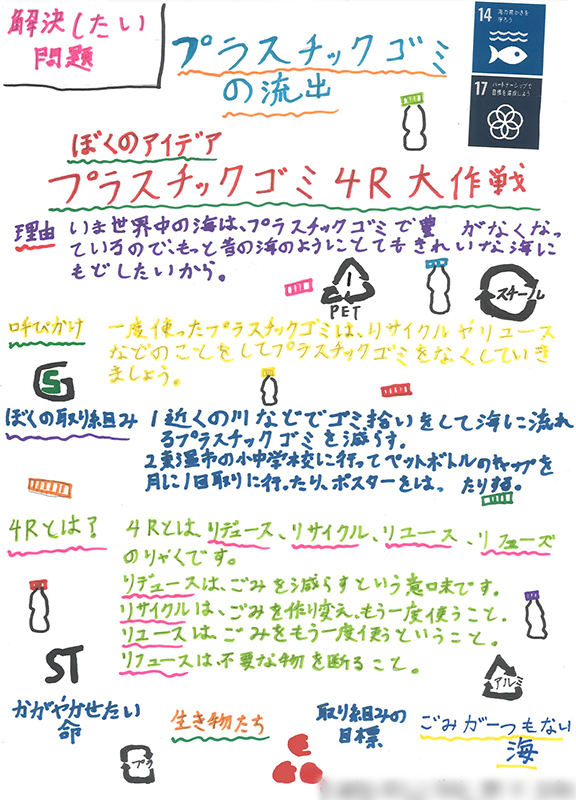 解決したい
問題
プラスチックゴミ
の流出
14 海の豊かさを
守ろう
17 パートナーシップで
目標を達成しよう
ぼくのアイデア
プラスチックゴミ4R大作戦
理由 いま世界中の海は、プラスチックゴミで豊 がなくなっ
ているので、もっと昔の海のようにとてもきれいな海に
もどしたいから。
1
PET
スチール
呼びかけ 一度使ったプラスチックゴミは、リサイクルやリユース
などのことをしてプラスチックゴミをなくしていき
ましょう。
S
ぼくの取り組み 1近くの川などでゴミ拾いをして海に流れ
るプラスチックゴミを減らす。
2 市の小中学校に行ってペットボトルのキャップを
月に1回取りに行ったり、ポスターをは たりする。
4Rとは? 4Rとは、リデュース、リサイクル、リユース、リフューズ
のりゃくです。
リデュースは、ごみを減らすという意味です。
リサイクルは、ごみを作り変え、もう一度使うこと。
リユースは、ごみをもう一度使うということ。
リフュースは、不要な物を断ること。
ST
アルミ
かがやかせたい
命
生き物たち
取り組みの
目標
ごみが一つもない
海
プラ